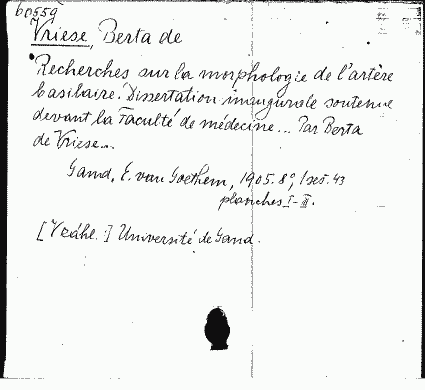 60559
Vriese, Berta de
Recherches sur la morphologie de l'artère
basilaire. Dissertation inaugurale soutenue
devant la Faculté de médecine... Par Berta
de Vriese...
Gand, E. van Goethem, 1905. 8°, 43
planches I-III.
Université de Gand.